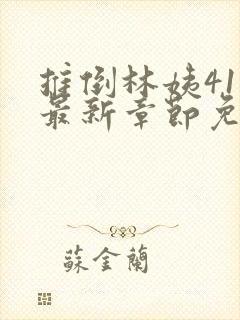 推倒林姨41
最新章节免
蘇金蘭